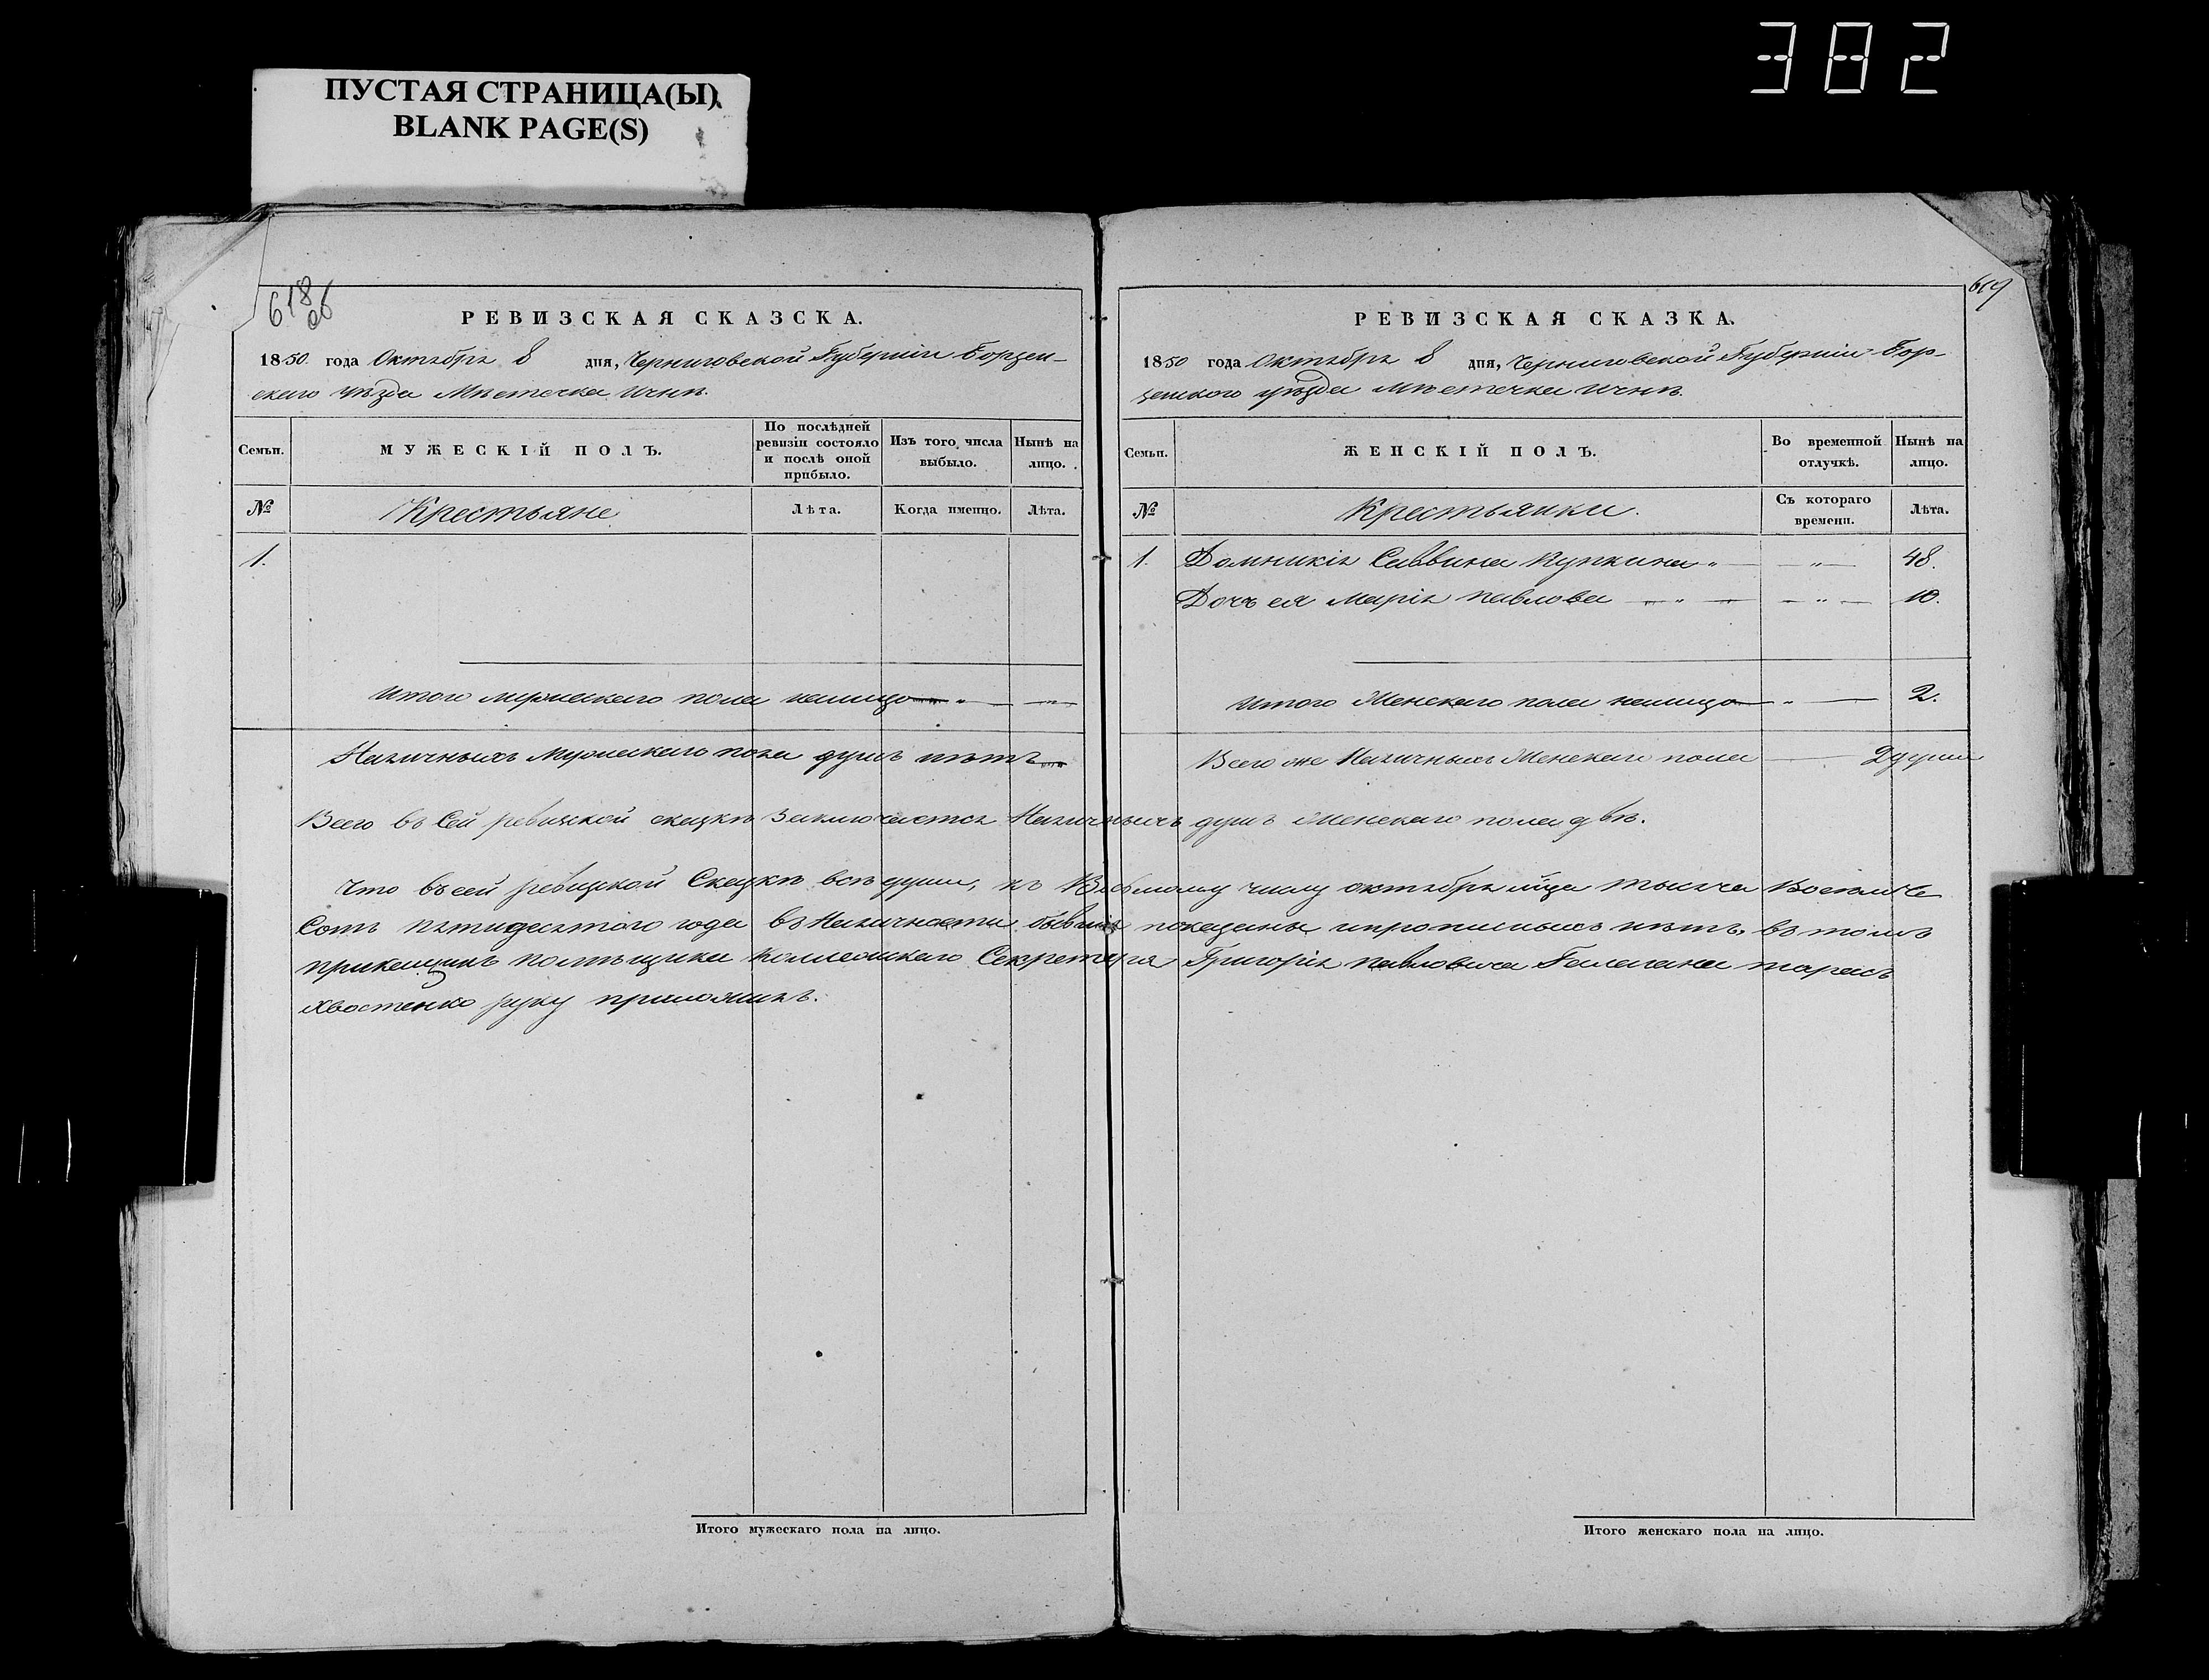 382
ПУСТАЯ СТРАНИЦА(Ы)
BLANK PAGE(S)
618 об
РЕВИЗСКАЯ СКАЗСКА.
1850 года Октября 8 дня, Черниговской Губерніи Борзен-
скаго уѣзда Мѣстечка Ичнѣ.
Семьи.
МУЖЕСКІЙ ПОЛЪ.
По послѣдней ревизіи состояло и послѣ оной прибыло.
Изъ того числа выбыло.
Нынѣ на лицо.
№
Крестьяне
Лѣта.
Когда именно.
Лѣта.
1.
Итого мужескаго пола налицо — „ — „ —
Наличныхъ Мужескаго пола душъ нѣтъ
619
РЕВИЗСКАЯ СКАЗКА.
1850 года Октября 8 дня, Черниговской Губерніи Бор-
зенского уѣзда Мѣстечка Ичнѣ.
Семьи.
ЖЕНСКІЙ ПОЛЪ.
Во временной отлучкѣ.
Нынѣ на лицо.
№
Крестьянки.
Съ котораго времени.
Лѣта.
1. Домникія Саввина Купкина „ — „ — 48.
Дочь ея Марія Павлова — „ — — „ — 10.
Итого Женскаго пола налицо — „ — 2.
Всего же Наличныхъ Женскаго пола — 2 души
Всего въ Сей ревизской сказкѣ Заключается Наличныхъ душъ Женскаго пола двѣ.
Что въ сей ревизской Сказкѣ всѣ души, къ Восьмому числу октября мѣсяца тысяча Восемь
Сотъ пятидесятого года въ Наличности бывшія показаны ипрописныхъ нѣтъ, въ томъ
прикащикъ помѣщика Коллежскаго Секретаря Григорія Павловича Галагана тарасъ
Хвостенко руку приложилъ.
Итого мужескаго пола на лицо.
Итого женскаго пола на лицо.